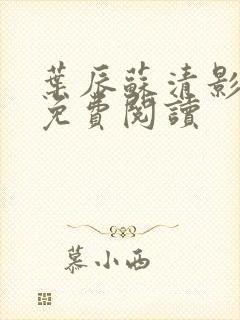 葉辰蘇清影
免費閱讀
慕小西